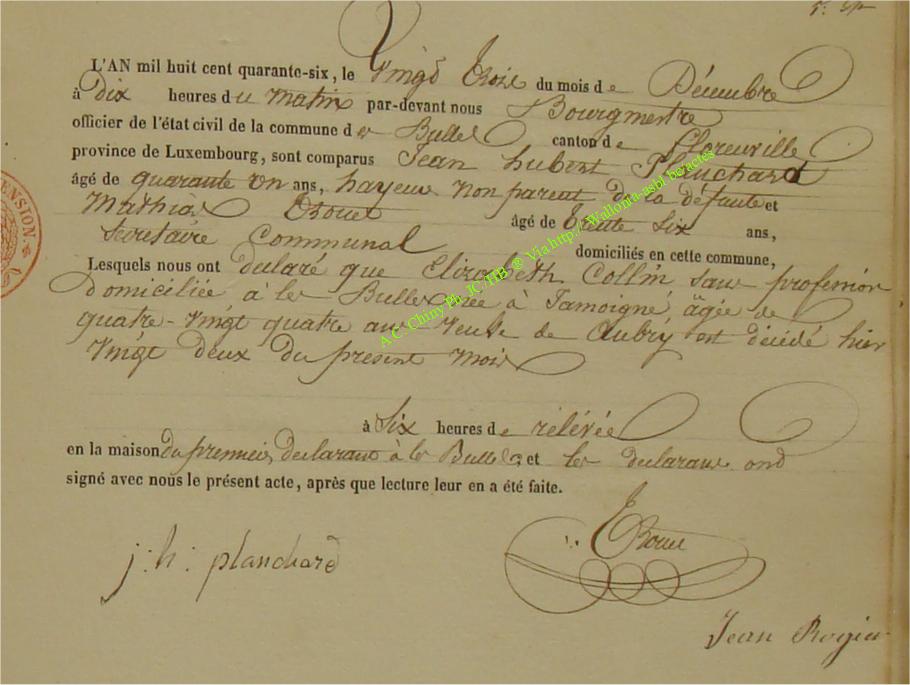 L'AN mil huit cent quarante-six, le Vingt Trois du mois de Décembre
à dix heures du matin par-devant nous Bourgmestre
officier de l'état civil de la commune des Bulles canton de Florenville
province de Luxembourg, sont comparus Jean hubert Planchard
âgé de quarante un ans, hayeur non parent de la défunte et
Mathias Étouet âgé de trente Six ans,
Secretaire Communal domiciliés en cette commune,
Lesquels nous ont declaré que Elizabeth Collin sans profession
domiciliée à les Bulles née à Jamoigne, âgée de
quatre-vingt quatre ans veuve de Aubry est décédé hier
Vingt deux du présent mois
à Six heures de rélévée
en la maison du premier declarant à les Bulles, et les declarans ond
signé avec nous le présent acte, après que lecture leur en a été faite.
j: h: planchard
Jean
ENSION.
A.C. Chiny Ph. JC/HB ® Via http://Wallonia-asbl.be/actes